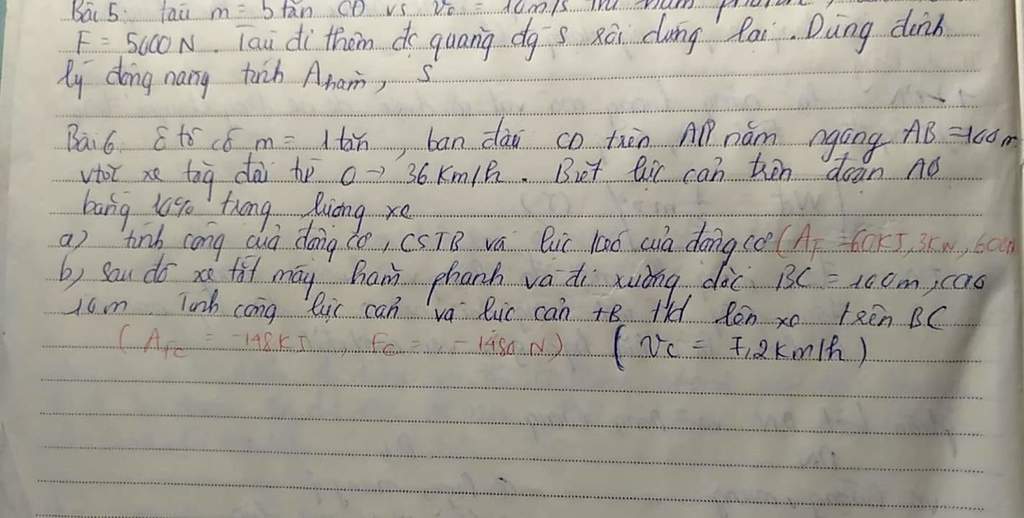 Bài 5: tàu m = 5 tấn CĐ vs v₀ = 10m/s thì hãm phanh,
F = 5000N. Tàu đi thêm đc quãng đg s rồi dừng lại. Dùng định
lý động năng tính Ahãm, S
Bài 6 Ô tô có m = 1 tấn, ban đầu CĐ trên AB nằm ngang AB = 100m
vtốc xe tăg dần từ 0 → 36 km/h. Biết lực cản trên đoạn AB
bằng 10% trọng lượng xe
a) tính công của động cơ, CSTB và lực kéo của động cơ (A_F = 60KJ, 3KW, 600N
b, sau đó xe tắt máy hãm phanh và đi xuống dốc BC = 100m, cao
10m. Tính công lực cản và lực cản TB tkd lên xe trên BC
(A_FC = -148KJ, F_C = -1480N) (Vc = 7,2km/h)